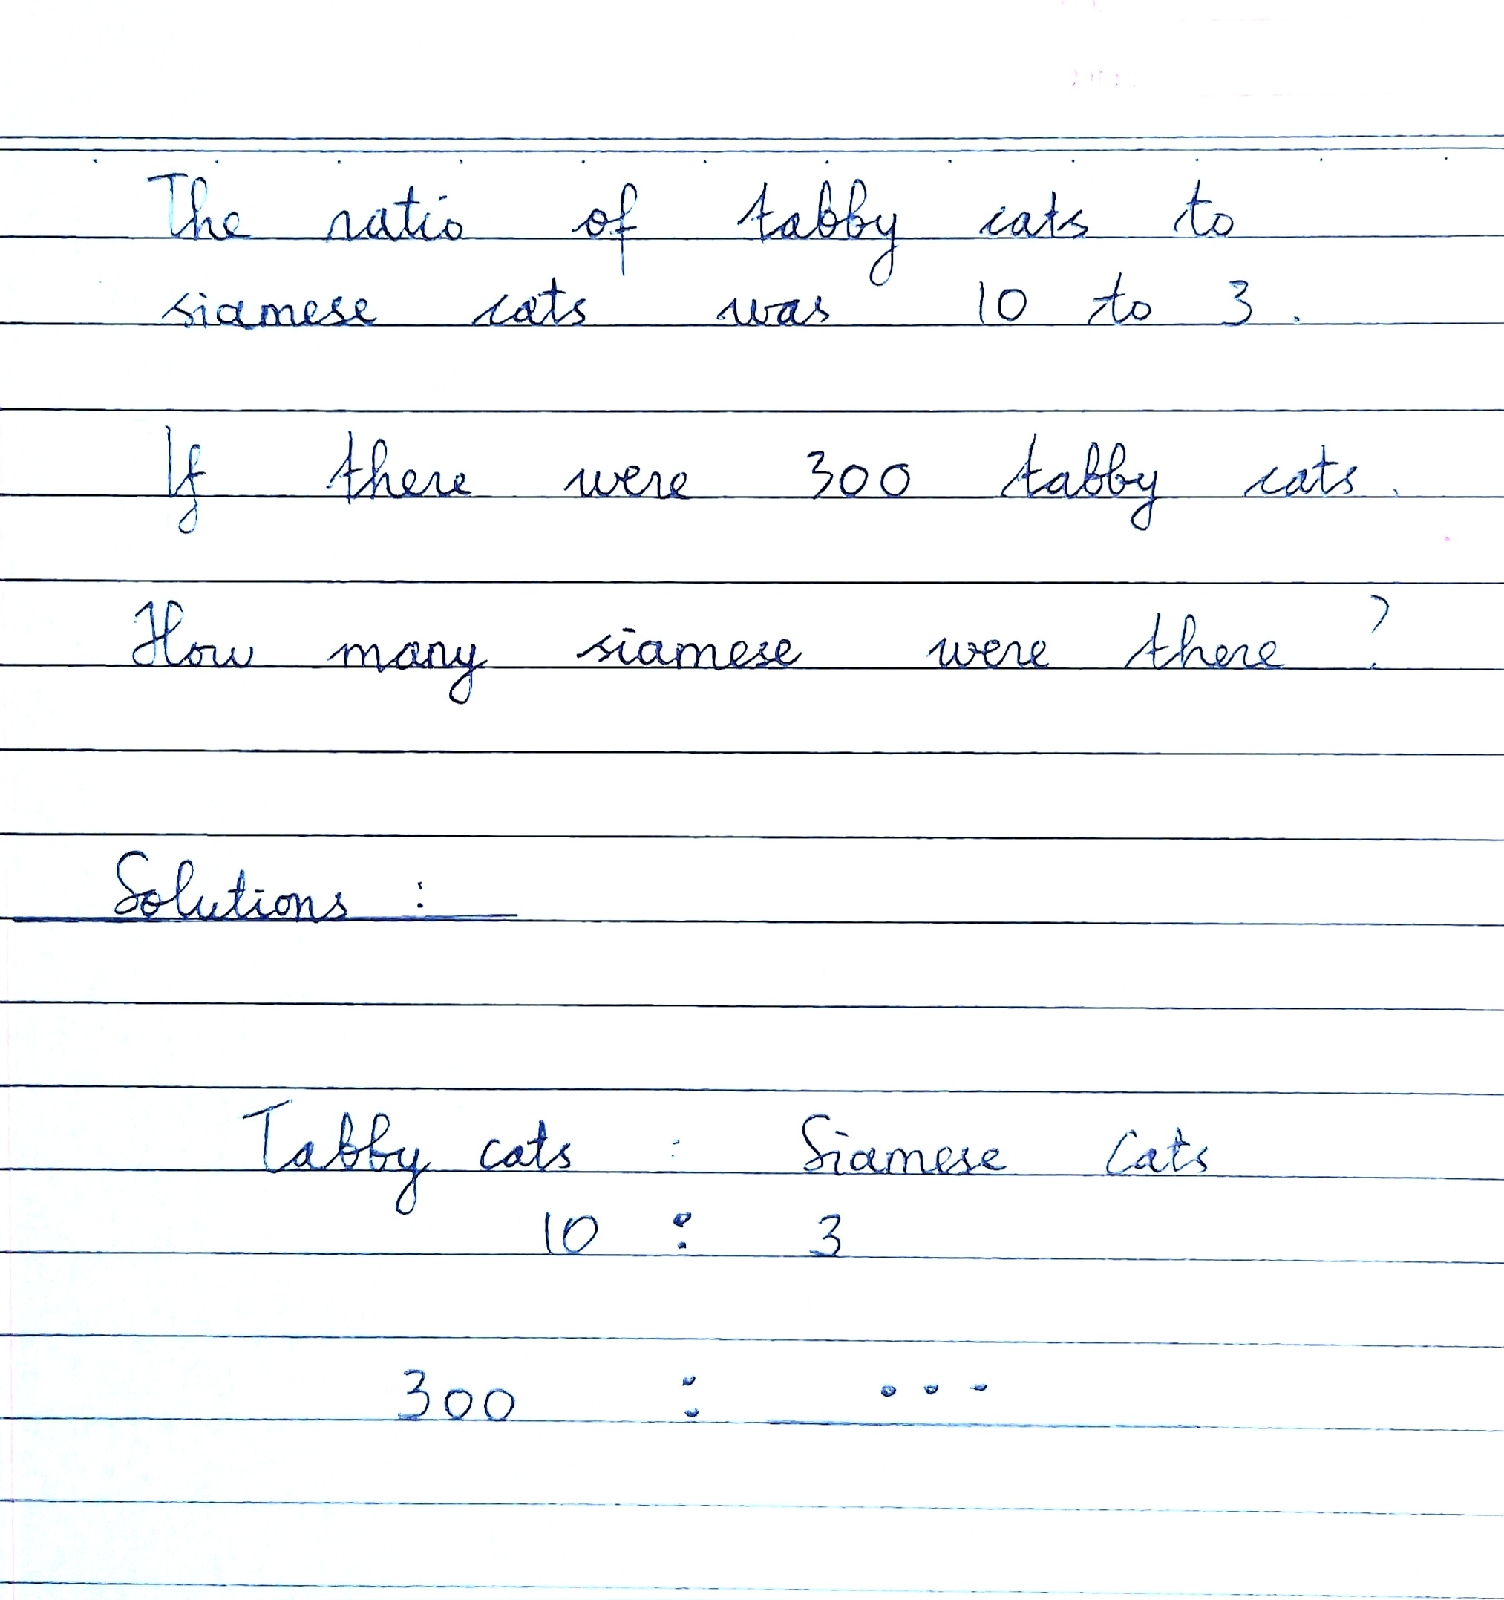 The ratio of tabby cats to
siamese cats was 10 to 3.
If there were 300 tabby cats.
How many siamese were there?
Solutions :
Tabby cats : Siamese Cats
10 : 3
300 : ...